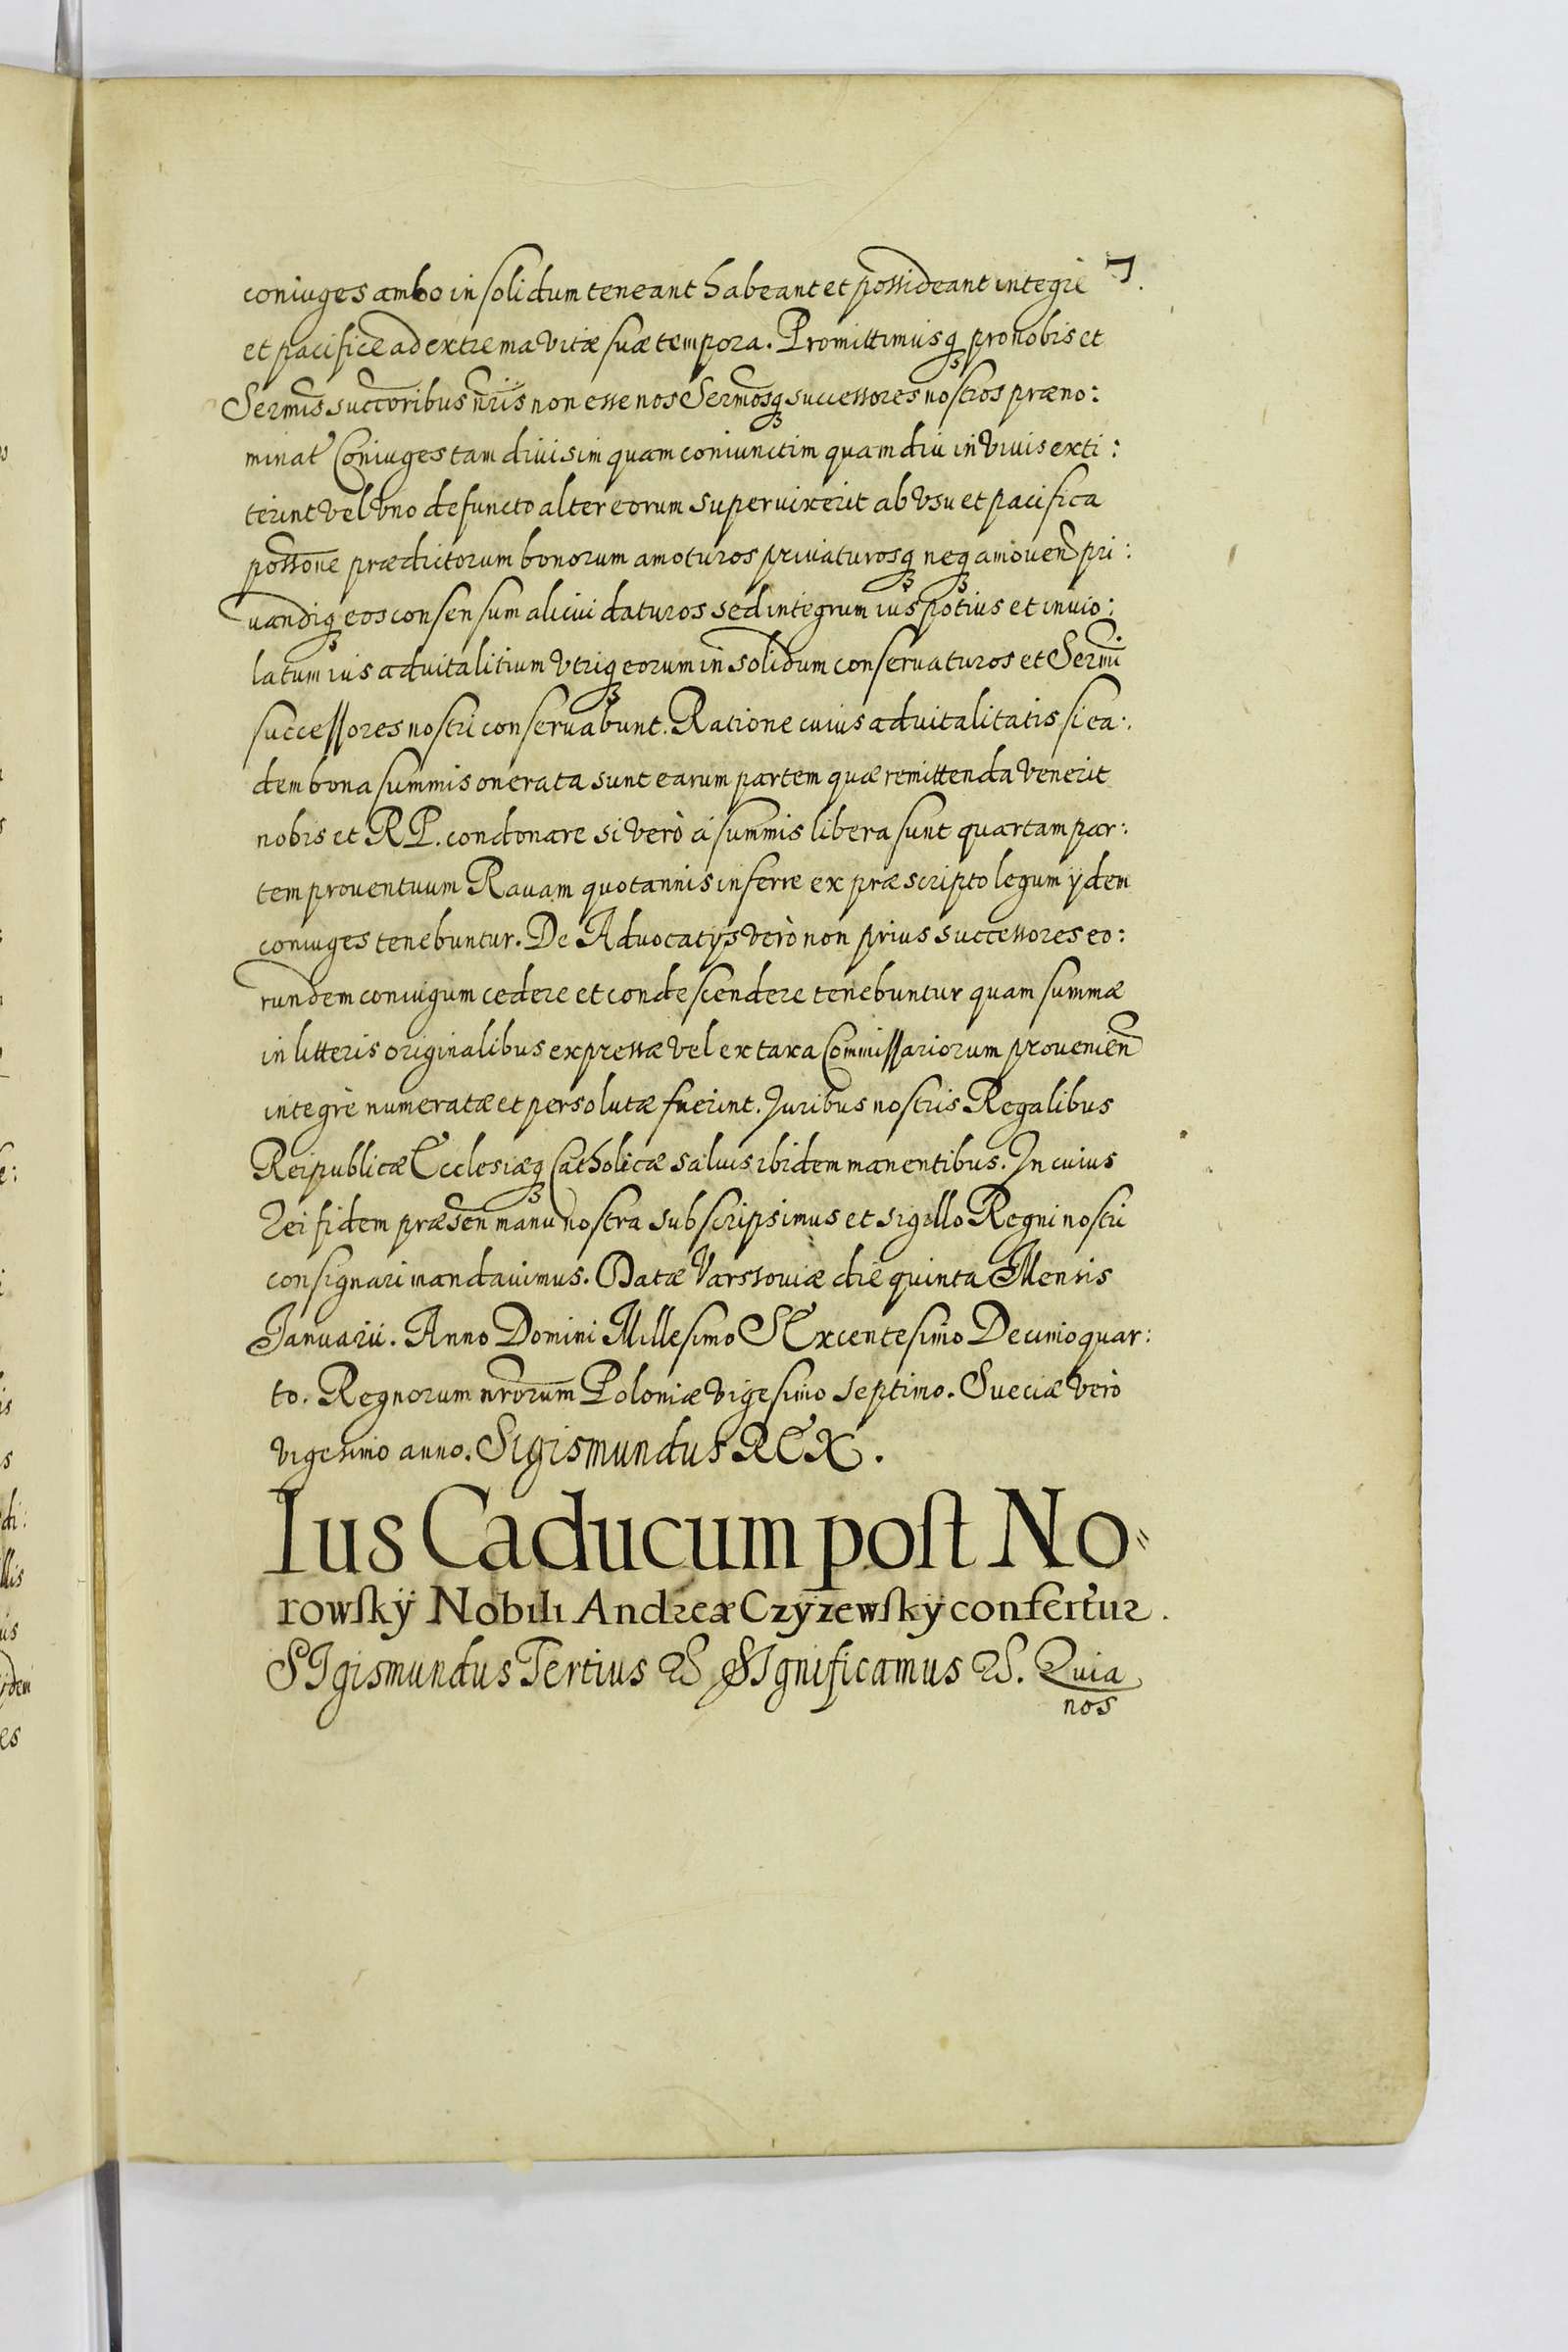 7.
coniuges ambo in solidum teneant habeant et possideant integrè
et pacifice ad extrema vitæ suæ tempora. Promittimusq3 pro nobis et
Sermis succoribus nris non esse nos Sermosq3 successores nostros præno:
minat' Coniuges tam divisim quam coniunctim quam diu in vivis exti:
terint vel vno defuncto alter eorum supervixerit ab vsu et pacifica
possone prædictorum bonorum amoturos privaturosq3 neq3 amoven pri:
vandiq3 eos consensum alicui daturos sed integrum ius potius et invio:
latum ius advitalitium vtriq3 eorum in solidum conservaturos et Sermi
successores nostri conservabunt. Ratione cuius advitalitatis si ea:
dem bona summis onerata sunt earum partem quæ remittenda venerit
nobis et RP. condonare si verò á summis libera sunt quartam par:
tem proventuum Ravam quotannis inferre ex præscripto legum ÿdem
coniuges tenebuntur. De Advocatÿs verò non prius successores eo:
rundem coniugum cedere et condescendere tenebuntur quam summæ
in litteris originalibus expressæ vel ex taxa Commissariorum provenien
integrè numeratæ et persolutæ fuerint. Juribus nostris Regalibus
Reipublicæ Ecclesiæq3 Catholicæ salvis ibidem manentibus. In cuius
rei fidem præsen manu nostra subscripsimus et sigillo Regni nostri
consignari mandavimus. Datæ Varssoviæ die quinta Mensis
Januarii. Anno Domini Millesimo SExcentesimo Decimo quar:
to. Regnorum nrorum Poloniæ vigesimo septimo. Sueciæ verò
vigesimo anno. Sigismundus REX.
Ius Caducum post No=
rowskÿ Nobili Andreæ Czyżewskÿ confertur.
SIgismundus Tertius &. SIgnificamus &. Quia
nos